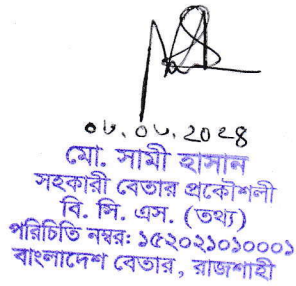 ০৮.০৮.২০২৪
মো. সামী হাসান
সহকারী বেতার প্রকৌশলী
বি. সি. এস. (তথ্য)
পরিচিতি নম্বর: ১৫২০২১০১০০০১
বাংলাদেশ বেতার, রাজশাহী